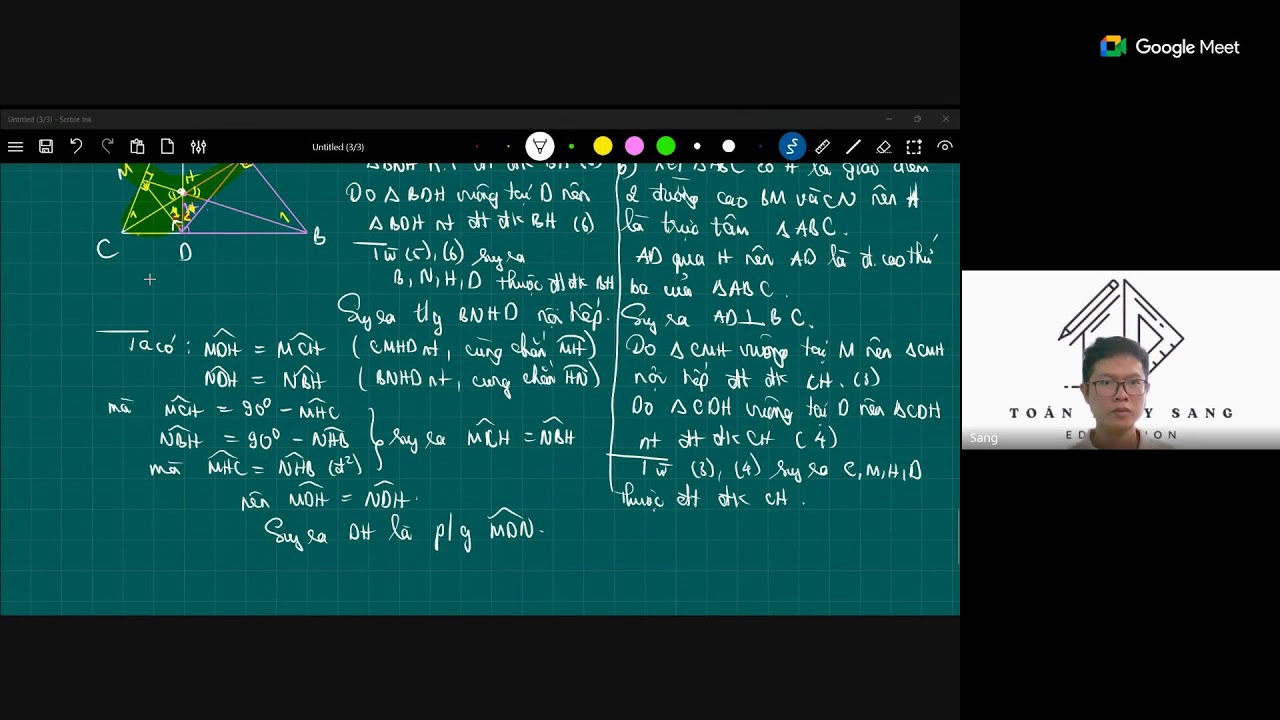 Google Meet
Untitled (3/3) - Scrble Ink
Untitled (3/3)
M
H
1
1 2
1
C
D
B
Do Δ BDH vuông tại D nên
Δ BDH nt đt đk BH (6)
Từ (5), (6) suy ra
B, N, H, D thuộc đt đk BH
Suy ra t/g BNHD nội tiếp.
Ta có : MDH = MCH ( CMHD nt, cùng chắn MH)
NDH = NBH ( BNHD nt, cùng chắn HN)
mà MCH = 90° - MHC
NBH = 90° - NHB
suy ra MCH = NBH
mà MHC = NHB (đ²)
nên MDH = NDH.
Suy ra DH là p/g MDN.
b) Xét Δ ABC có H là giao điểm
2 đường cao BM và CN nên H
là trực tâm Δ ABC.
AD qua H nên AD là đ. cao thứ
ba của Δ ABC.
Suy ra AD ⊥ BC.
Do Δ CMH vuông tại M nên Δ CMH
nội tiếp đt đk CH. (3)
Do Δ CDH vuông tại D nên Δ CDH
nt đt đk CH (4)
Từ (3), (4) suy ra C, M, H, D
thuộc đt đk CH.
TOÁN Y SANG
Sang